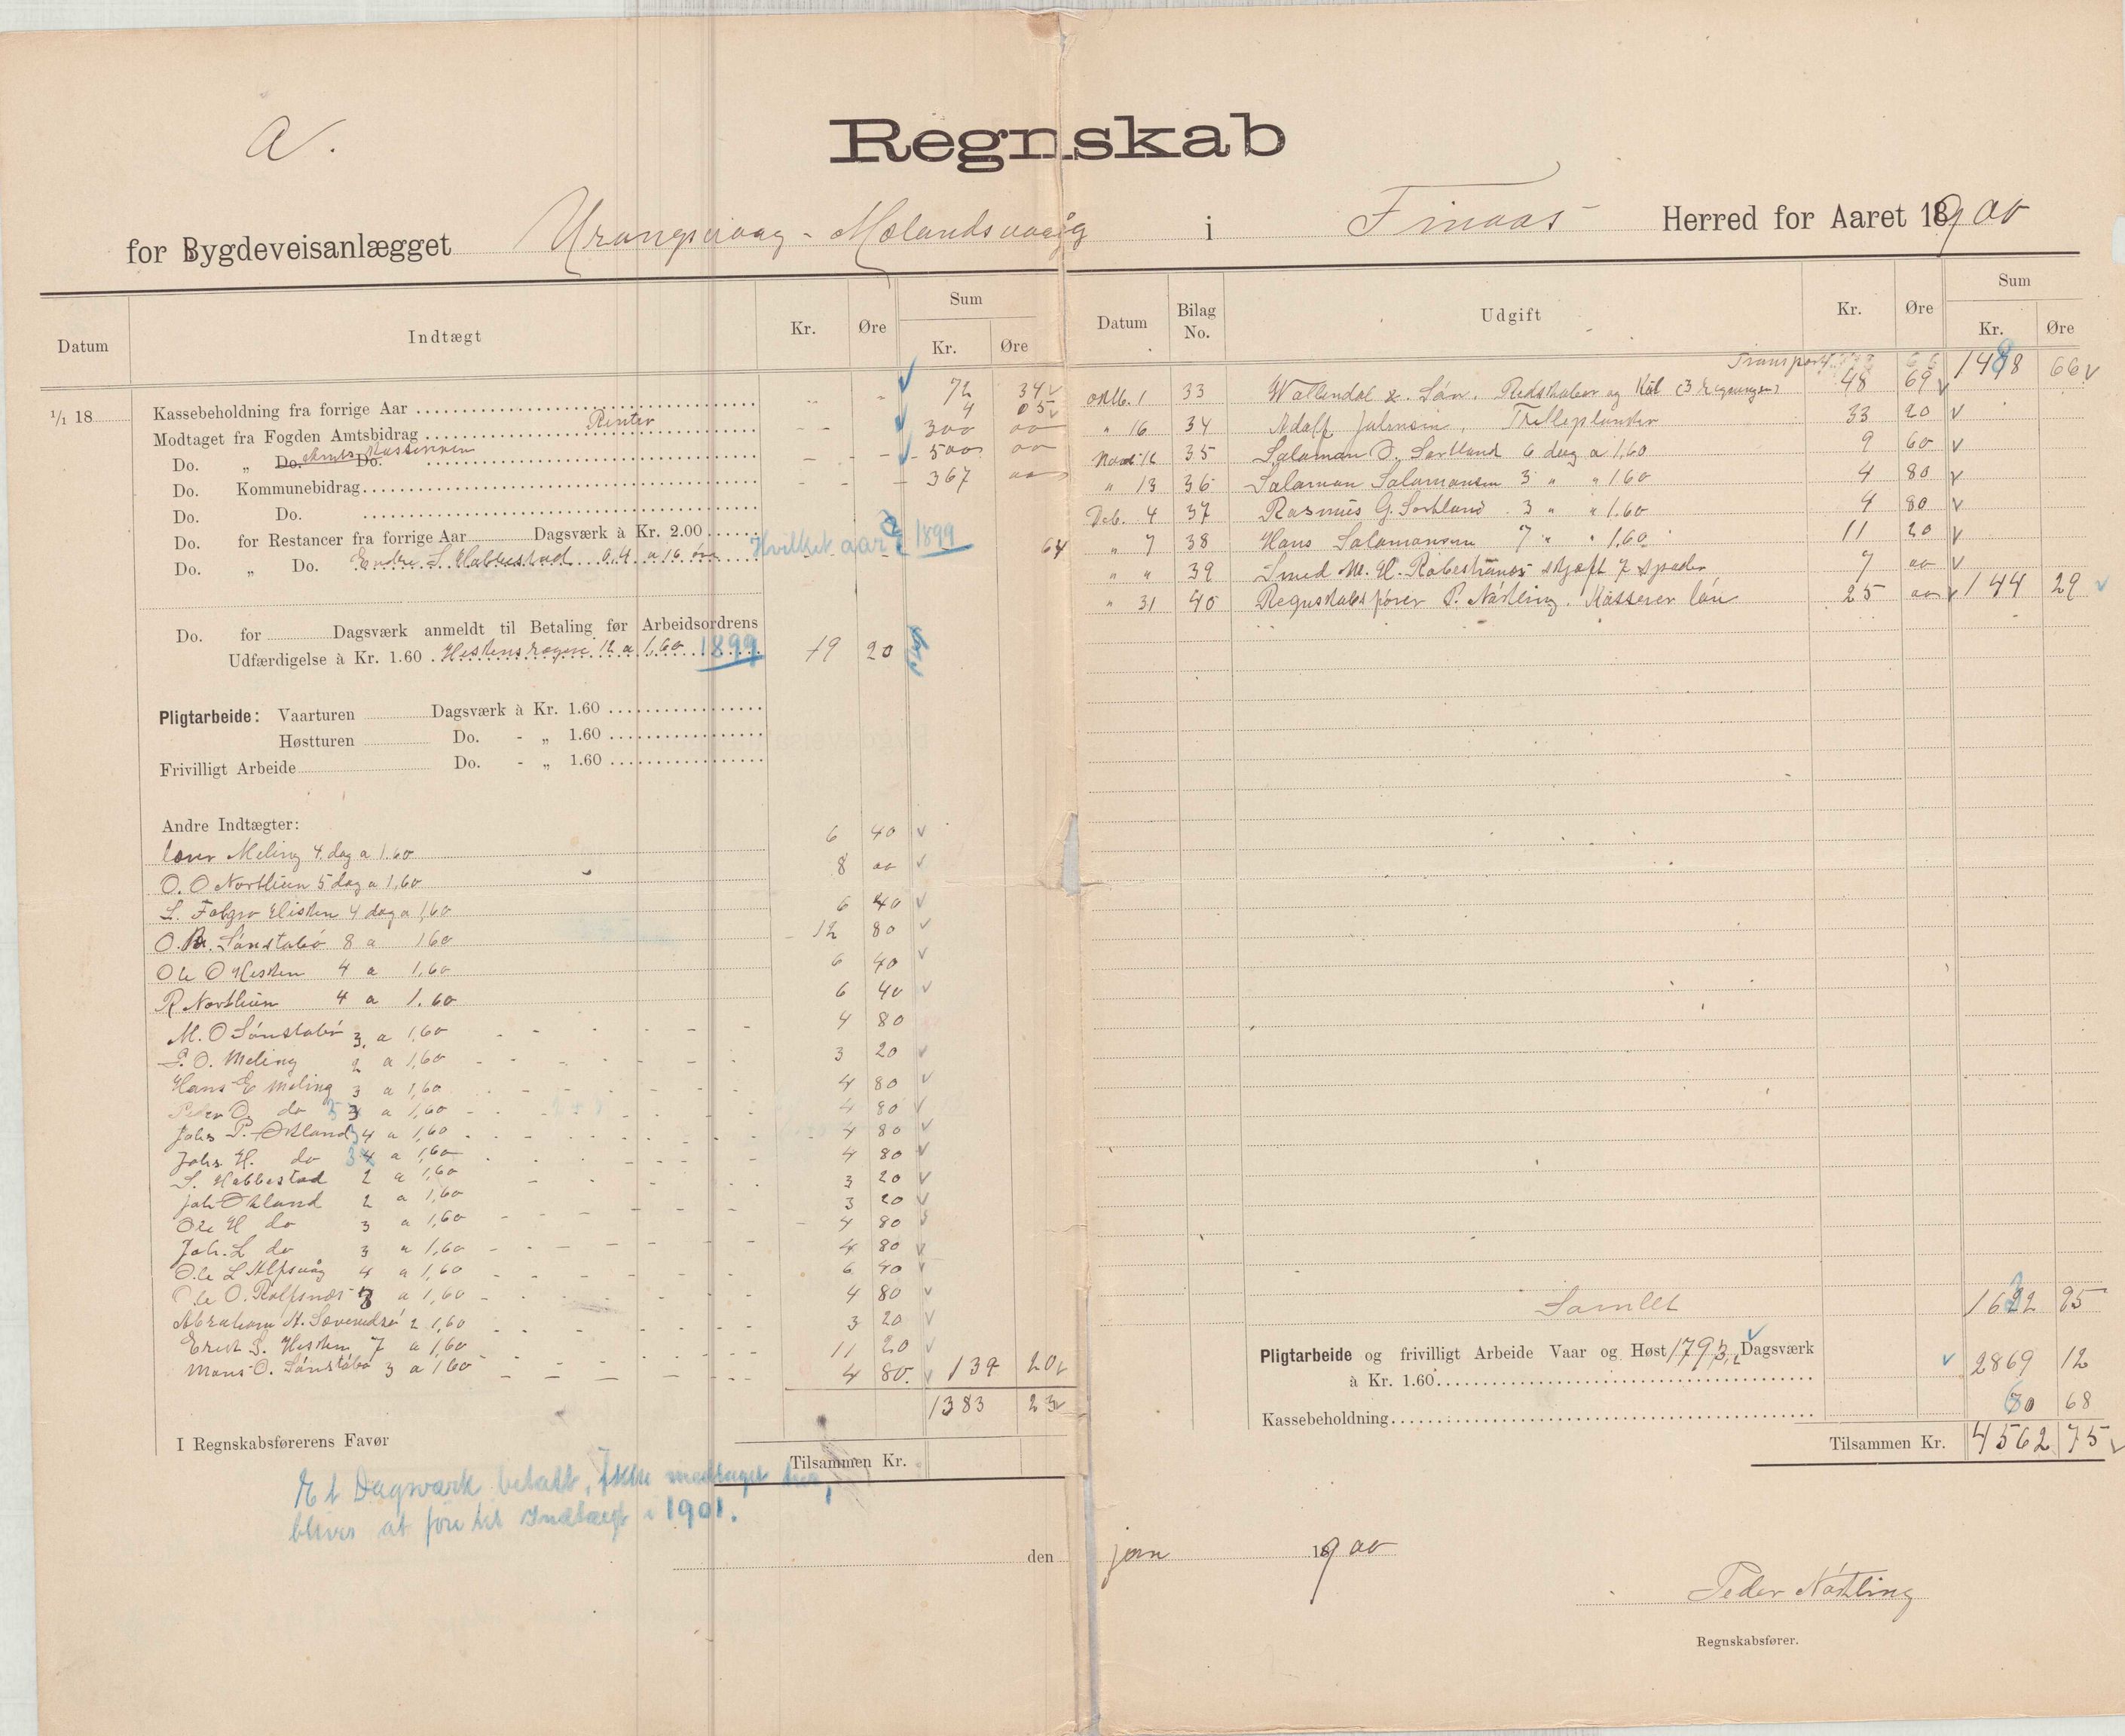 A.
Regnskab
for Bygdeveisanlægget Urangsvaag - Mælandsvaag i Finaas Herred for Aaret 1900
Datum Indtægt Kr. Øre Sum Kr. Øre
1/1 18 Kassebeholdning fra forrige Aar 72 34
Renter 4 05
Modtaget fra Fogden Amtsbidrag 300 00
Do. „ Do. Amts Kassereren Do. 500 00
Do. Kommunebidrag 367 00
Do. Do.
Do. for Restancer fra forrige Aar Dagsværk à Kr. 2.00
Do. „ Do. Endre S. Habbestad 0,4 a 16 øre Hvilket aar? 1899 64
Do. for Dagsværk anmeldt til Betaling før Arbeidsordrens
Udfærdigelse à Kr. 1.60 12 a 1,60 1899 19 20
Pligtarbeide: Vaarturen Dagsværk à Kr. 1.60
Høstturen Do. - „ 1.60
Frivilligt Arbeide Do. - „ 1.60
Andre Indtægter:
lærer Meling 4 dag a 1.60 6 40
O. O Nortluen 5 dag a 1,60 8 00
L. Folgerø Hisken 4 dag a 1,60 6 40
O. Sønstabø 8 a 160 12 80
Ole O Hisken 4 a 1,60 6 40
R Nortluen 4 a 1.60 6 40
M. O Sønstabø 3 a 1,60 4 80
P. O. Meling 2 a 1,60 3 20
Hans E Meling 3 a 1,60 4 80
Peder O. do 3 a 1,60 4 80
Johs P. Økland 3 4 a 1,60 4 80
Johs. H. do 3 4 a 1,60 4 80
S. Habbestad 2 a 1,60 3 20
Joh Økland 2 a 1,60 3 20
Ole H do 3 a 1,60 4 80
Joh. L do 3 a 1,60 4 80
Ole L Alfsvåg 4 a 1,60 6 40
Ole O. Rolfsnæs 3 a 1,60 4 80
Abraham 2 1,60 3 20
Erik S. Hisken 7 a 1,60 11 20
Mons O. Sønstabø 3 a 1 60 4 80 139 20
1383 23
I Regnskabsførerens Favør
Tilsammen Kr.
Et Dagværk betalt, Ikke modtaget her,
bliver at føre til Indtægt i 1901.
Datum Bilag No. Udgift Kr. Øre Sum Kr. Øre
Transport 1488 66
oktb. 1 33 Wallendal & Søn. Redskaber og Kul (3 regninger) 48 69
" 16 34 Adolf Johnsen, Trelleplanker 33 20
Novb 12 35 Salamon S. Sortland 6 dag a 1,60 9 60
" 13 36 Salamon Salamonsen 3 " " 1 60 4 80
Deb. 4 37 Rasmus G. Sortland 3 " " 1.60 4 80
" 7 38 Hans Salamonsen 7 " " 1,60 11 20
" " 39 Smed M. H. skjæft 7 spader 7 00
" 31 40 Regnskabsfører P. Nørtling. Kasserer løn 25 00 144 29
Samlet 1632 95
Pligtarbeide og frivilligt Arbeide Vaar og Høst 1793,2 Dagsværk
à Kr. 1.60 2869 12
Kassebeholdning 60 68
Tilsammen Kr. 4562 75
den jan 1900
Peder Nørtling
Regnskabsfører.